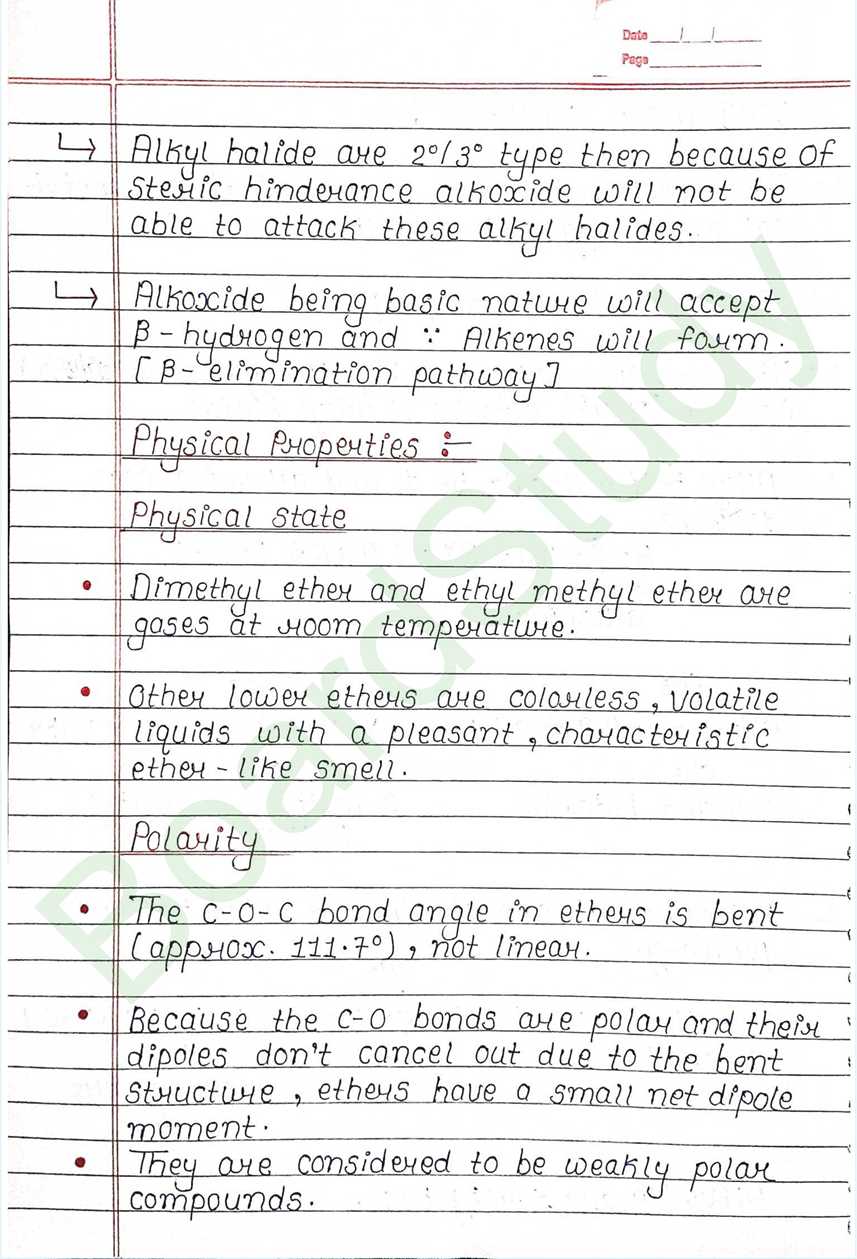 Date / /
Page
↳ Alkyl halide are 2°/3° type then because of
steric hinderance alkoxide will not be
able to attack these alkyl halides.
↳ Alkoxide being basic nature will accept
β-hydrogen and ∵ Alkenes will form.
[β-elimination pathway]
Physical Properties :-
Physical State
• Dimethyl ether and ethyl methyl ether are
gases at room temperature.
• Other lower ethers are colorless, volatile
liquids with a pleasant, characteristic
ether-like smell.
Polarity
• The C-O-C bond angle in ethers is bent
(approx. 111.7°), not linear.
• Because the C-O bonds are polar and their
dipoles don't cancel out due to the bent
structure, ethers have a small net dipole
moment.
• They are considered to be weakly polar
compounds.
BoardStudy